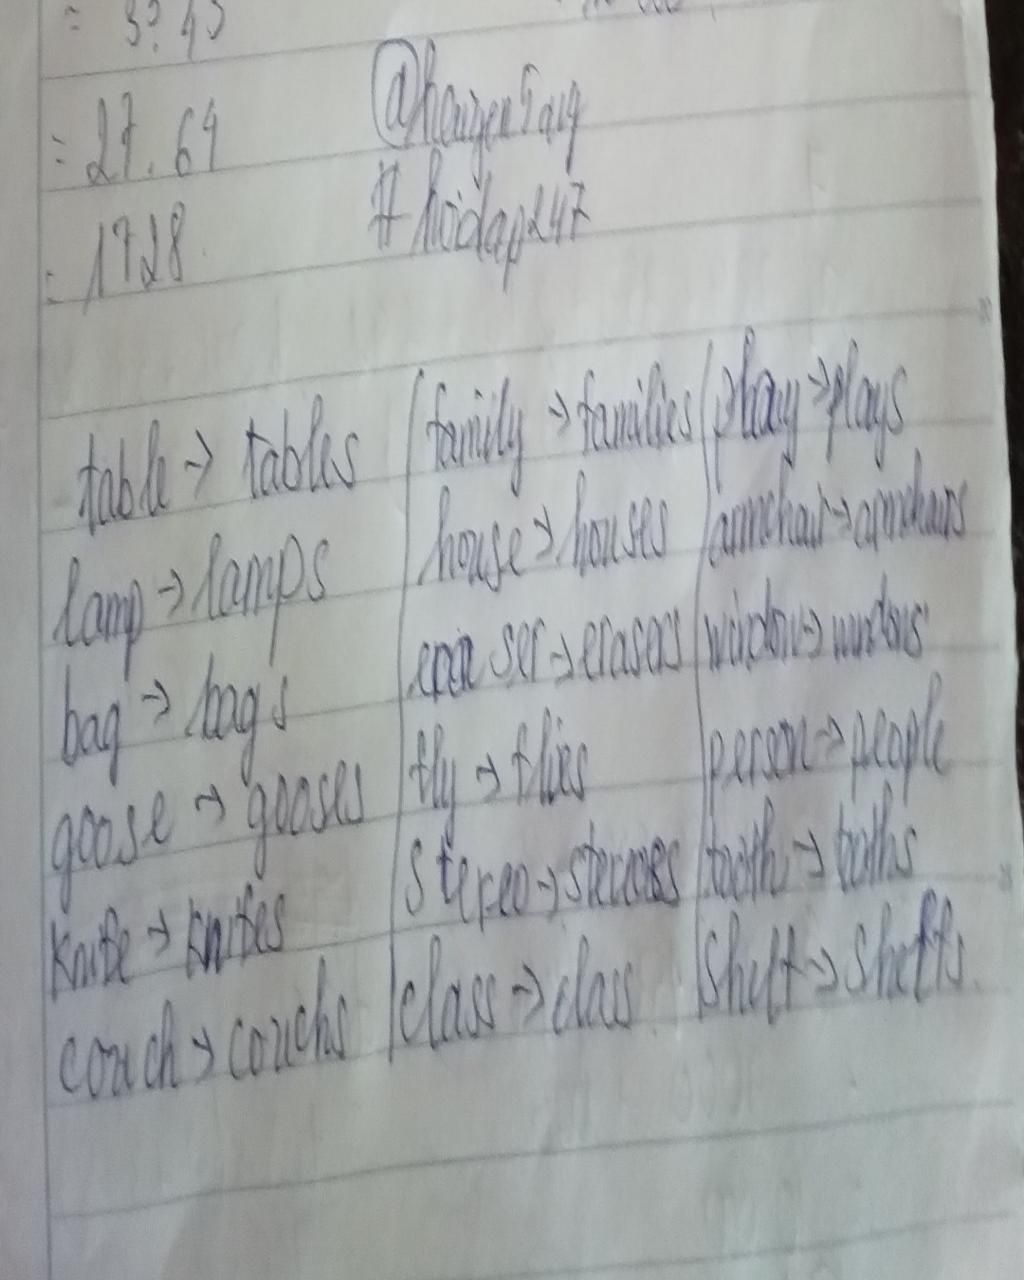 = 3³.4³
= 27.64 @hanzen5aig
= 1728 #hoidap247
table → tables | family → families | play → plays
lamp → lamps house → houses | armchair → armchairs
bag → bags eraser → erasers | window → windows
goose → gooses | fly → flies person → people
knife → knifes stereo → stereoes | tooth → tooths
couch → couchs | class → class | shelf → shelfs